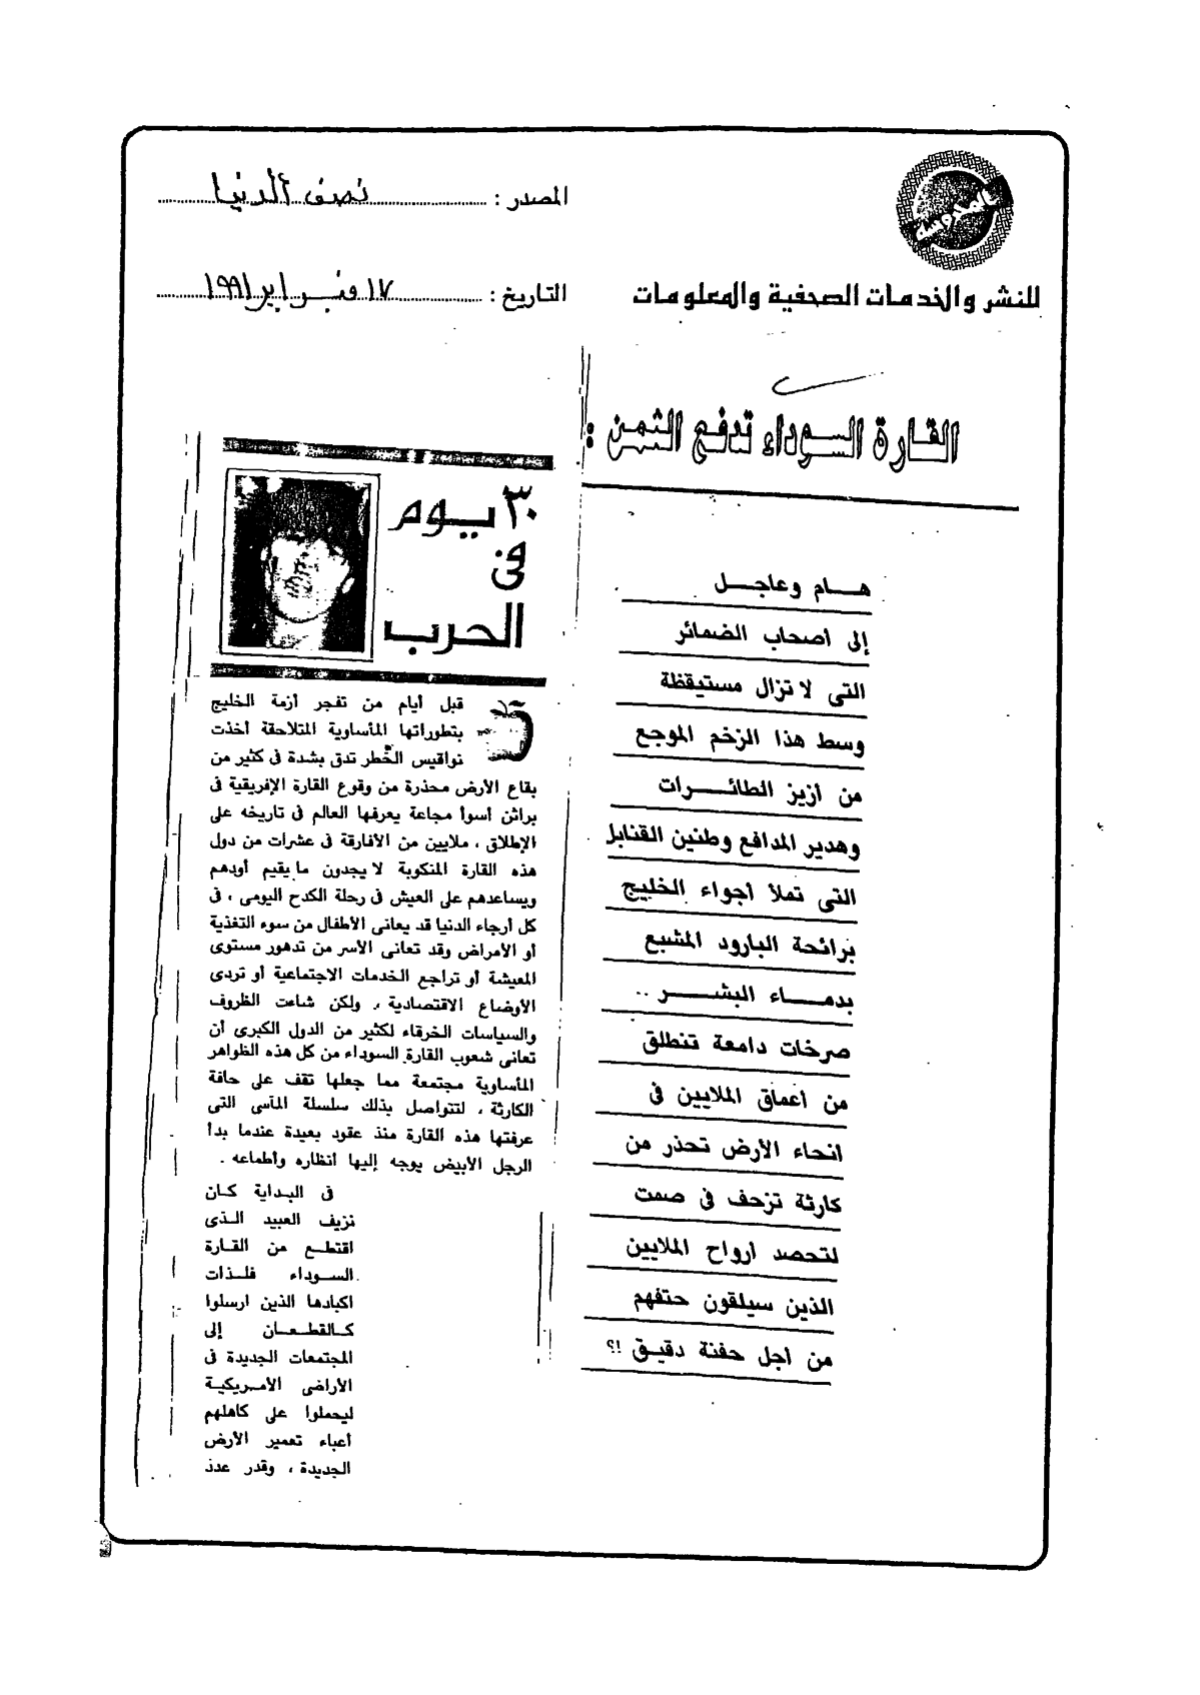 المصدر : نصف الدنيا
للنشر والخدمات الصحفية والمعلومات
التاريخ : ١٧ فبراير ١٩٩١
القارة السوداء تدفع الثمن :
هـام وعاجـل
إلى أصحاب الضمائر
التى لا تزال مستيقظة
وسط هذا الزخم الموجع
من أزيز الطائـرات
وهدير المدافع وطنين القنابل
التى تملأ أجواء الخليج
برائحة البارود المشبع
بدمـاء البشـر ..
صرخات دامعة تنطلق
من أعماق الملايين فى
أنحاء الأرض تحذر من
كارثة تزحف فى صمت
لتحصد أرواح الملايين
الذين سيلقون حتفهم
من أجل حفنة دقيق !؟
٣٠ يـوم
فى
الحرب
قبل أيام من تفجر أزمة الخليج
بتطوراتها المأساوية المتلاحقة أخذت
نواقيس الخطر تدق بشدة فى كثير من
بقاع الأرض محذرة من وقوع القارة الإفريقية فى
براثن أسوأ مجاعة يعرفها العالم فى تاريخه على
الإطلاق ، ملايين من الأفارقة فى عشرات من دول
هذه القارة المنكوبة لا يجدون ما يقيم أودهم
ويساعدهم على العيش فى رحلة الكدح اليومى ، فى
كل أرجاء الدنيا قد يعانى الأطفال من سوء التغذية
أو الأمراض وقد تعانى الأسر من تدهور مستوى
المعيشة أو تراجع الخدمات الاجتماعية أو تردى
الأوضاع الاقتصادية ، ولكن شاءت الظروف
والسياسات الخرقاء لكثير من الدول الكبرى أن
تعانى شعوب القارة السوداء من كل هذه الظواهر
المأساوية مجتمعة مما جعلها تقف على حافة
الكارثة ، لتتواصل بذلك سلسلة المآسى التى
عرفتها هذه القارة منذ عقود بعيدة عندما بدأ
الرجل الأبيض يوجه إليها أنظاره وأطماعه .
فى البداية كـان
نزيف العبيد الـذى
اقتطـع من القـارة
السـوداء فلـذات
أكبادها الذين أرسلوا
كـالقطعـان إلى
المجتمعات الجديدة فى
الأراضى الأمـريكيـة
ليحملوا على كاهلهم
أعباء تعمير الأرض
الجديدة ، وقدر عدد